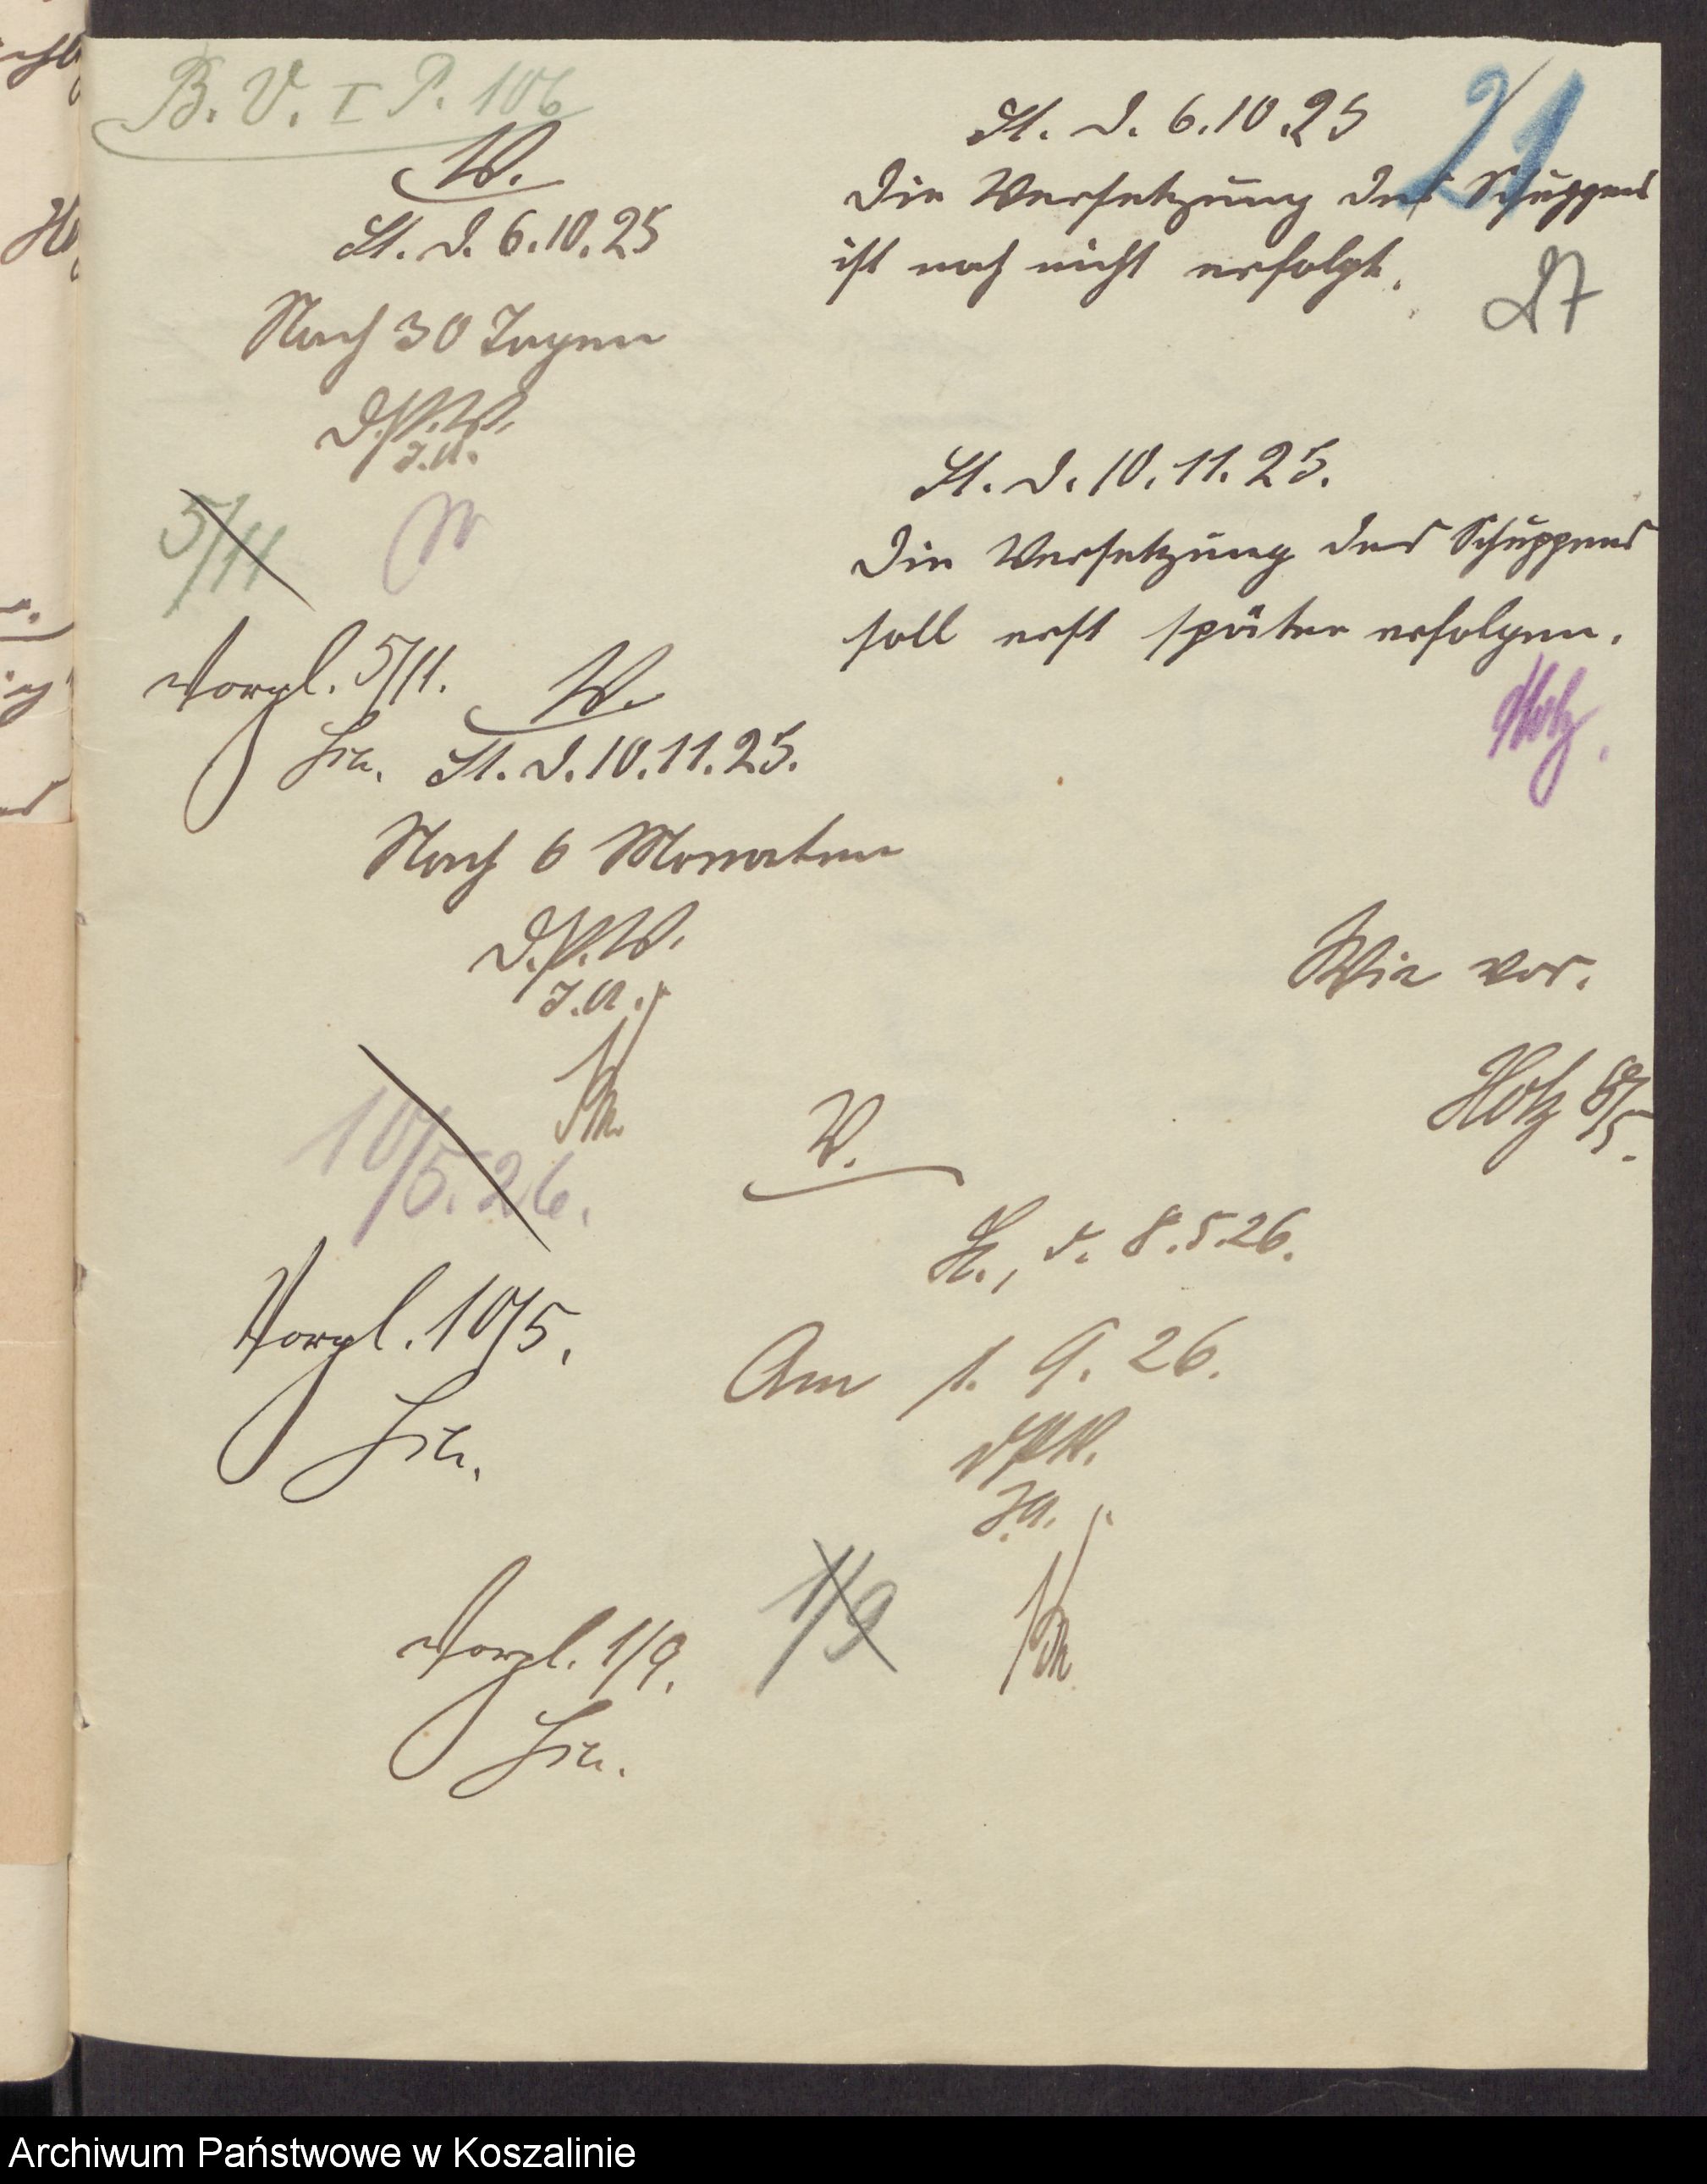 B. V. I P. 106
21
St. d. 6.10.25
Die Versetzung des Schuppens
ist noch nicht erfolgt.
W.
St. d. 6.10.25
Nach 30 Tagen
D.P.V.
I.A.
5/11
St. d. 10.11.25.
Die Versetzung des Schuppens
soll erst später erfolgen.
Holz.
Vorgel. 5/11.
W.
St. d. 10.11.25.
Nach 6 Monaten
D.P.V.
I.A.
Wie vor.
Holz 8/5.
10/5.26.
V.
St., d. 8.5.26.
Vorgel. 10/5.
Am 1. 9. 26.
DPV.
I.A.
1/9
Vorgel. 1/9.
Archiwum Państwowe w Koszalinie